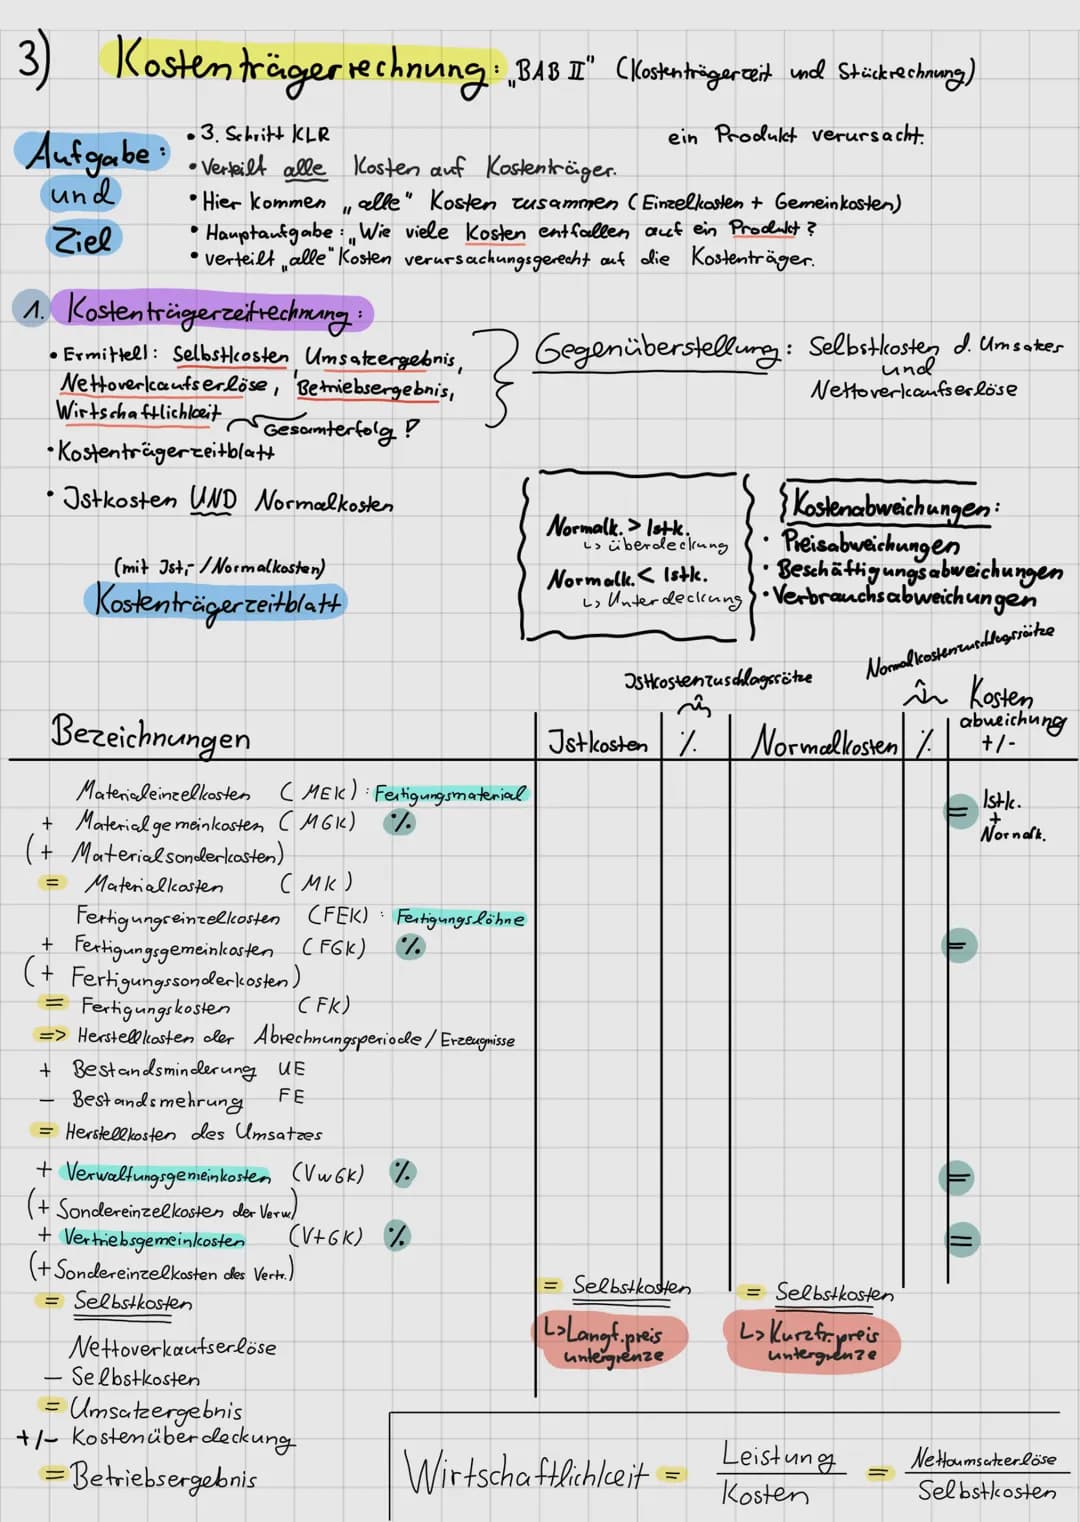 3) Kostenträgerrechnung: „BAB II" (Kostenträgerzeit und Stückrechnung)
Aufgabe:
und
Ziel
• 3. Schritt KLR
ein Produkt verursacht.
• Verteilt alle Kosten auf Kostenträger.
• Hier kommen „alle" Kosten zusammen (Einzelkosten + Gemeinkosten)
• Hauptaufgabe: „Wie viele Kosten entfallen auf ein Produkt?
• verteilt „alle" Kosten verursachungsgerecht auf die Kostenträger.
1. Kostenträgerzeitrechnung:
• Ermittelt: Selbstkosten Umsatzergebnis,
Nettoverkaufserlöse, Betriebsergebnis,
Wirtschaftlichkeit
Gesamterfolg!
Gegenüberstellung: Selbstkosten d. Umsatzes
und
Nettoverkaufserlöse
• Kostenträgerzeitblatt
• Istkosten UND Normalkosten
Normalk. > Istk.
↳ Überdeckung
Normalk. < Istk.
↳ Unterdeckung
Kostenabweichungen:
• Preisabweichungen
• Beschäftigungsabweichungen
• Verbrauchsabweichungen
(mit Ist,- /Normalkosten)
Kostenträgerzeitblatt
Istkostenzuschlagssätze
Normalkostenzuschlagssätze
Bezeichnungen
Istkosten
%
Normalkosten
%
Kosten
abweichung
+/-
Materialeinzelkosten (MEK): Fertigungsmaterial
+ Materialgemeinkosten (MGK) %
= Istk.
+
Normalk.
(+ Materialsonderkosten)
= Materialkosten (MK)
Fertigungseinzelkosten (FEK): Fertigungslöhne
+ Fertigungsgemeinkosten (FGK) % =
(+ Fertigungssonderkosten)
= Fertigungskosten (FK)
=> Herstellkosten der Abrechnungsperiode/Erzeugnisse
+ Bestandsminderung UE
- Bestandsmehrung FE
= Herstellkosten des Umsatzes
+ Verwaltungsgemeinkosten (VwGK) % =
(+ Sondereinzelkosten der Verw.)
+ Vertriebsgemeinkosten (VtGK) % =
(+ Sondereinzelkosten des Vertr.)
= Selbstkosten
= Selbstkosten
↳ Langf. preis
untergrenze
= Selbstkosten
↳ Kurzfr. preis
untergrenze
Nettoverkaufserlöse
- Selbstkosten
= Umsatzergebnis
+/- Kostenüberdeckung
= Betriebsergebnis
Wirtschaftlichkeit = Leistung / Kosten = Nettoumsatzerlöse / Selbstkosten